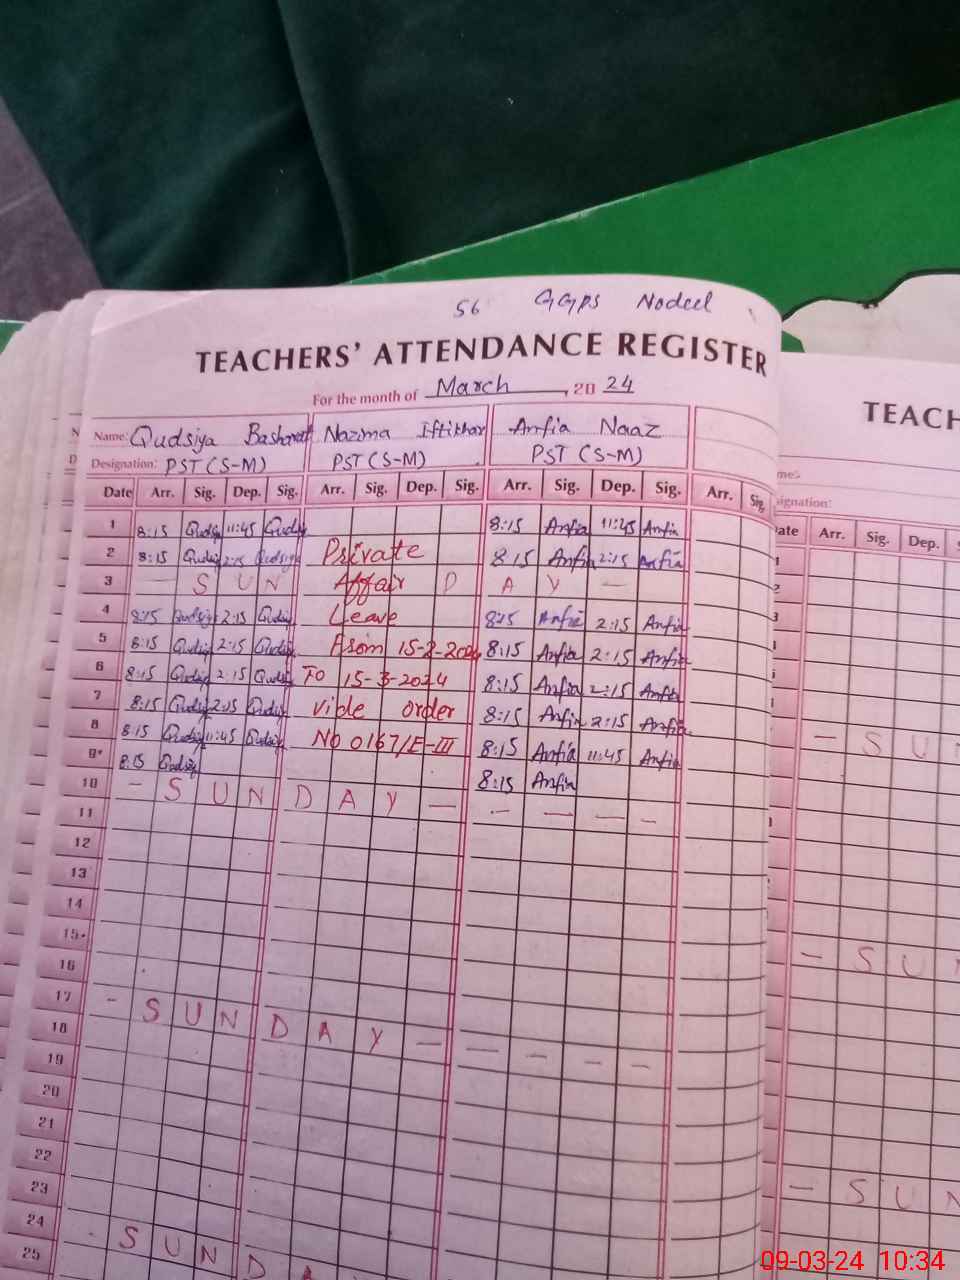 56 GGPS Nodeel
TEACHERS' ATTENDANCE REGISTER
For the month of March, 20 24
Name: Qudsiya Basharat Nazima Iftikhar Anfia Naaz
Designation: PST (S-M) PST (S-M) PST (S-M)
Date Arr. Sig. Dep. Sig. Arr. Sig. Dep. Sig. Arr. Sig. Dep. Sig. Arr. Sig.
1 8:15 Qudsiy 11:45 Qudsiy 8:15 Anfia 11:45 Anfia
2 8:15 Qudsiy 2:15 Qudsiya Private 8:15 Anfia 2:15 Anfia
3 — S U N Affair D A Y —
4 8:15 Qudsiy 2:15 Qudsiy Leave 8:15 Anfia 2:15 Anfia
5 8:15 Qudsiy 2:15 Qudsiy From 15-2-2024 8:15 Anfia 2:15 Anfia
6 8:15 Qudsiy 2:15 Qudsiy To 15-3-2024 8:15 Anfia 2:15 Anfia
7 8:15 Qudsiy 2:15 Qudsiy vide order 8:15 Anfia 2:15 Anfia
8 8:15 Qudsiy 11:45 Qudsiy No 0167/E-III 8:15 Anfia 11:45 Anfia
9 8:15 Qudsiy 8:15 Anfia
10 — S U N D A Y — — — — —
11
12
13
14
15
16
17 — S U N D A Y — — — — —
18
19
20
21
22
23
24 - S U N D
25
TEACH
me:
signation:
ate Arr. Sig. Dep.
— S U N
— S U N
— S U N
09-03-24 10:34